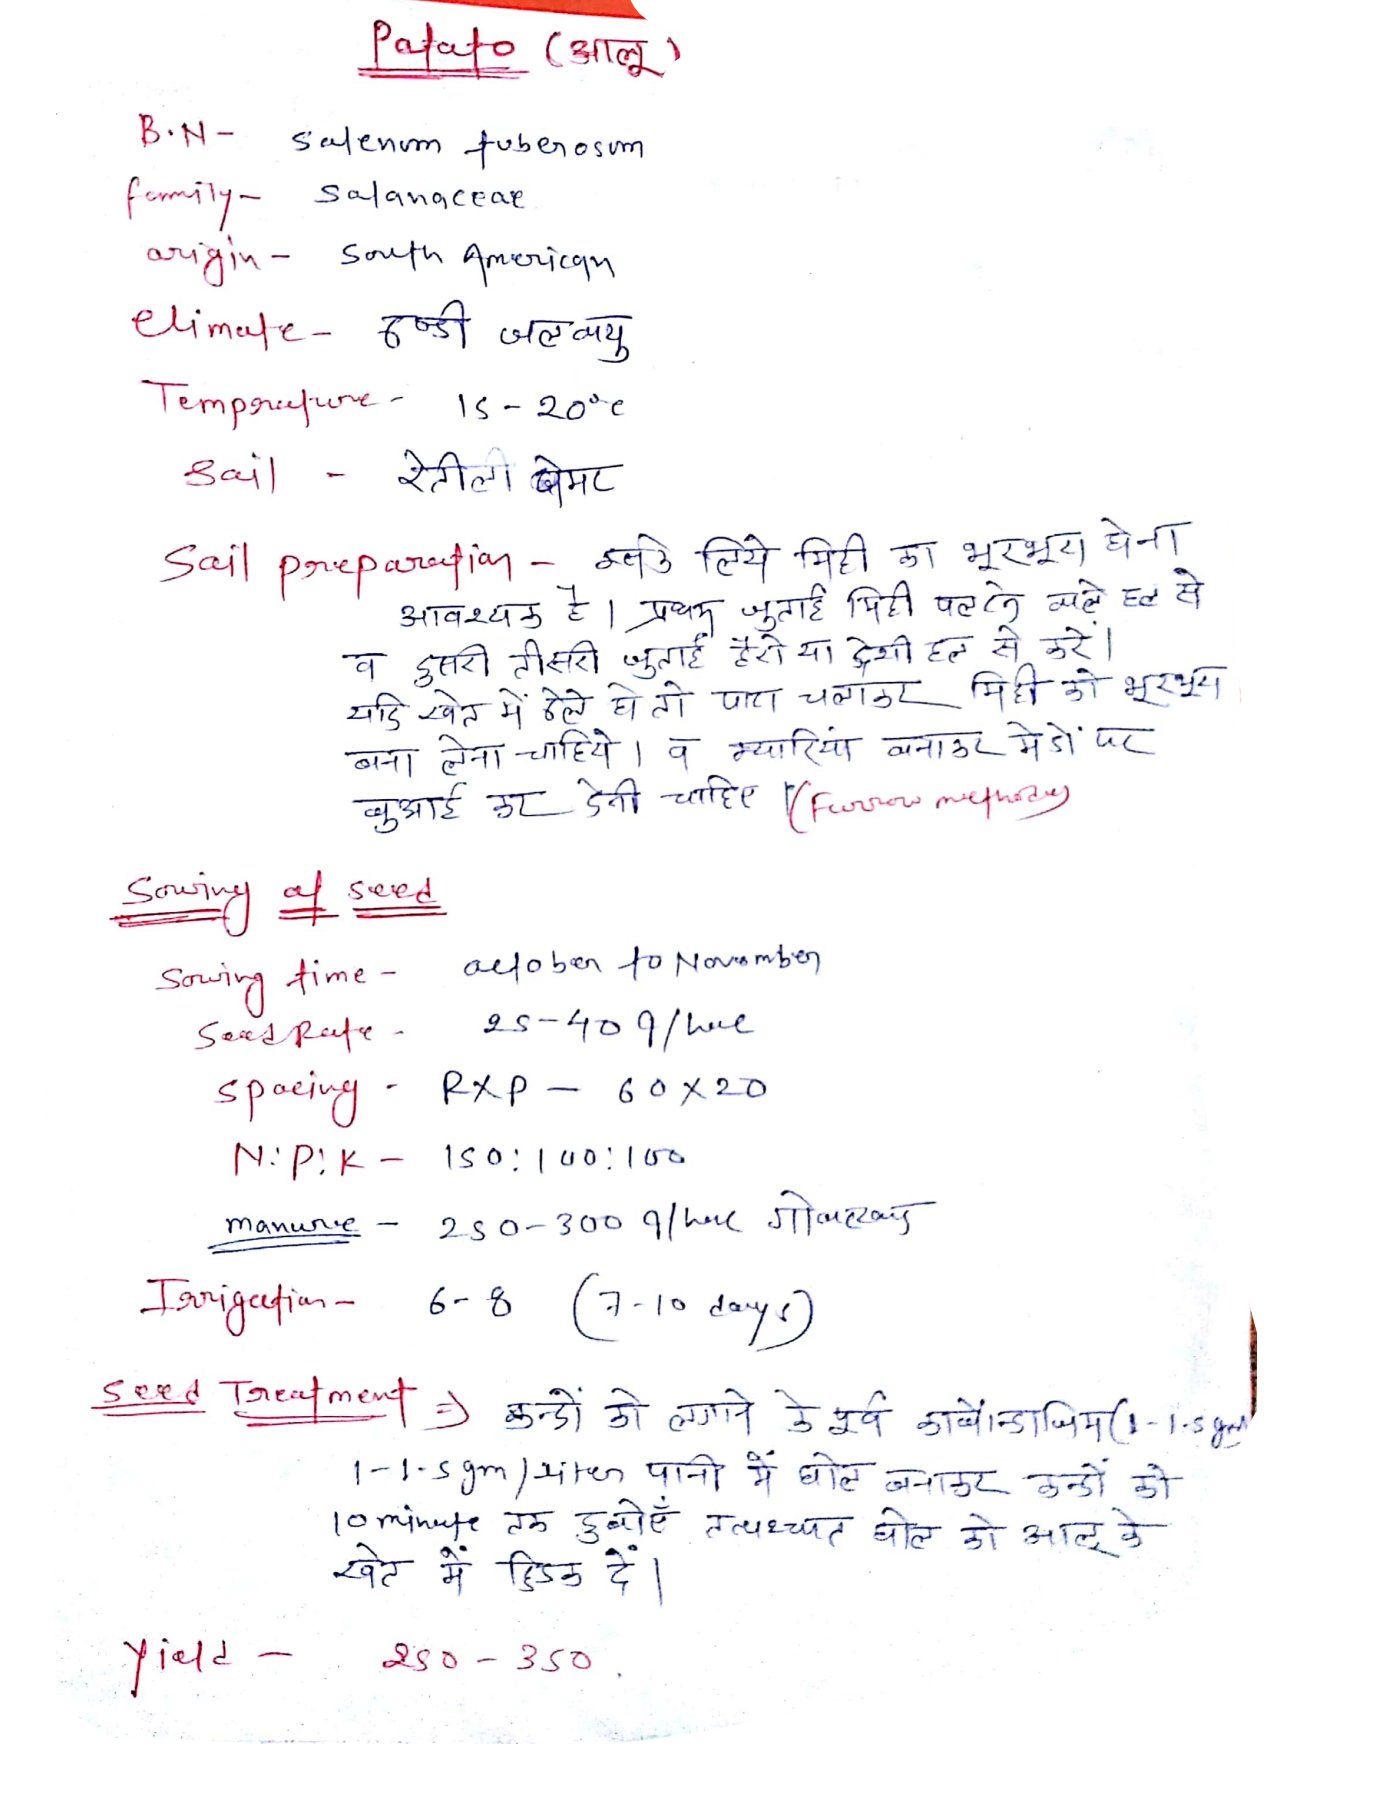 Patato (आलू)
B.N - Salenum tuberosum
family - Salanaceae
arigin - South American
Climate - ठण्डी जलवायु
Temperature - 15 - 20°c
Sail - रेतीली दोमट
Sail preparation - इसके लिये मिट्टी का भूरभूरा होना
आवश्यक है। प्रथम जुताई मिट्टी पलटने वाले हल से
व दुसरी तीसरी जुताई हैरो या देशी हल से करें।
यदि खेत में ढेले हो तो पाटा चलाकर मिट्टी को भूरभूरा
बना लेना चाहिये। व क्यारियां बनाकर मेडों पर
बुआई कर देनी चाहिए। (Furrow methods)
Sowing of seed
Sowing time - actober to November
Seed Rate - 25-40 q/hac
Spacing - RXP - 60X20
N:P:K - 150:100:100
manure - 250-300 q/hac गोबरखाद
Irrigation - 6-8 (7-10 days)
Seed Treatment ⇒ कन्दों को लगाने के पूर्व कार्बेन्डाजिम (1-1.5 gm
1-1.5 gm/liter पानी में घोल बनाकर कन्दों को
10 minute तक डुबोएँ तत्पश्चात घोल को आलू के
खेत में छिडक दें।
Yield - 250 - 350.